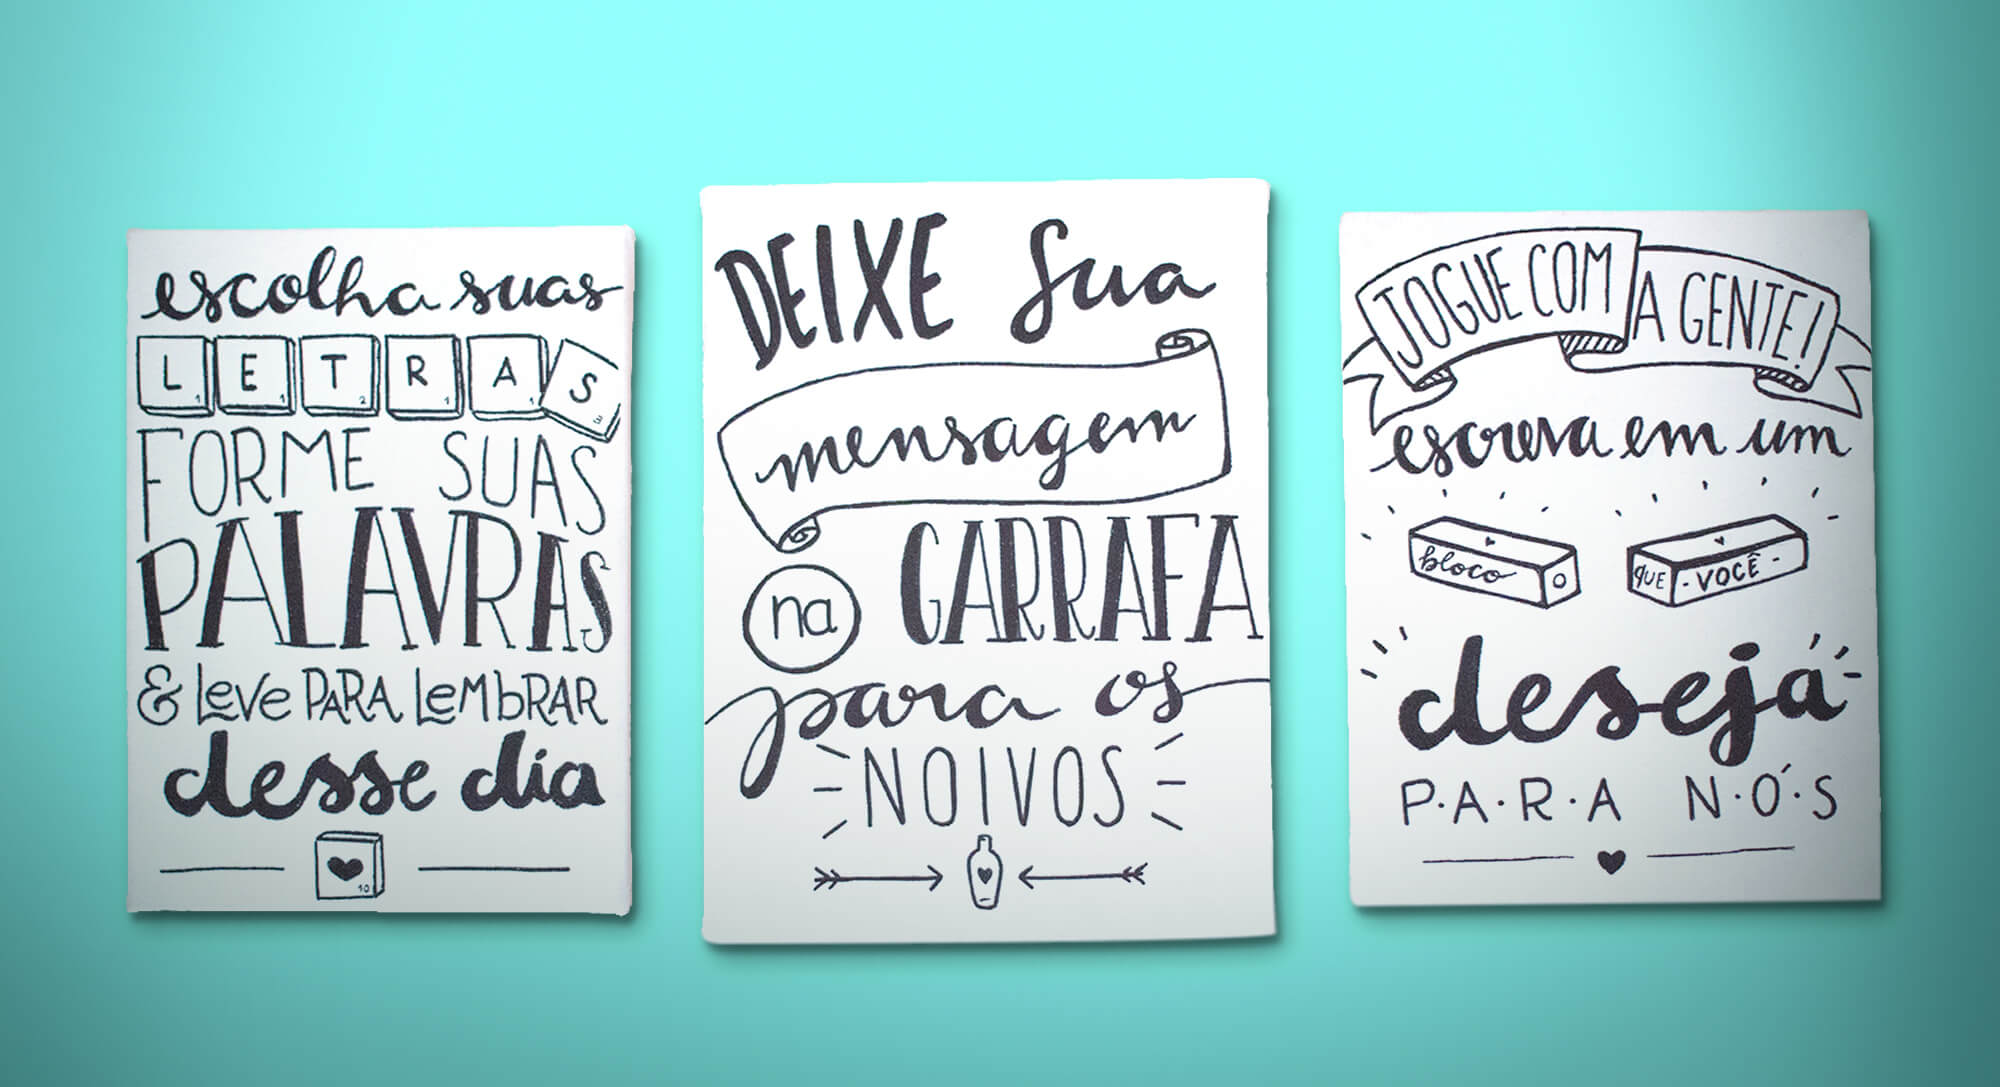 escolha suas
LETRAS
FORME SUAS
PALAVRAS
& LeVe PARA LeMbRAR
desse dia
10
DEIXE sua
mensagem
na GARRAFA
para os
NOIVOS
JOGUE COM A GENTE!
escreva em um
bloco O QUE -VOCÊ-
deseja
P.A.R.A N.Ó.S